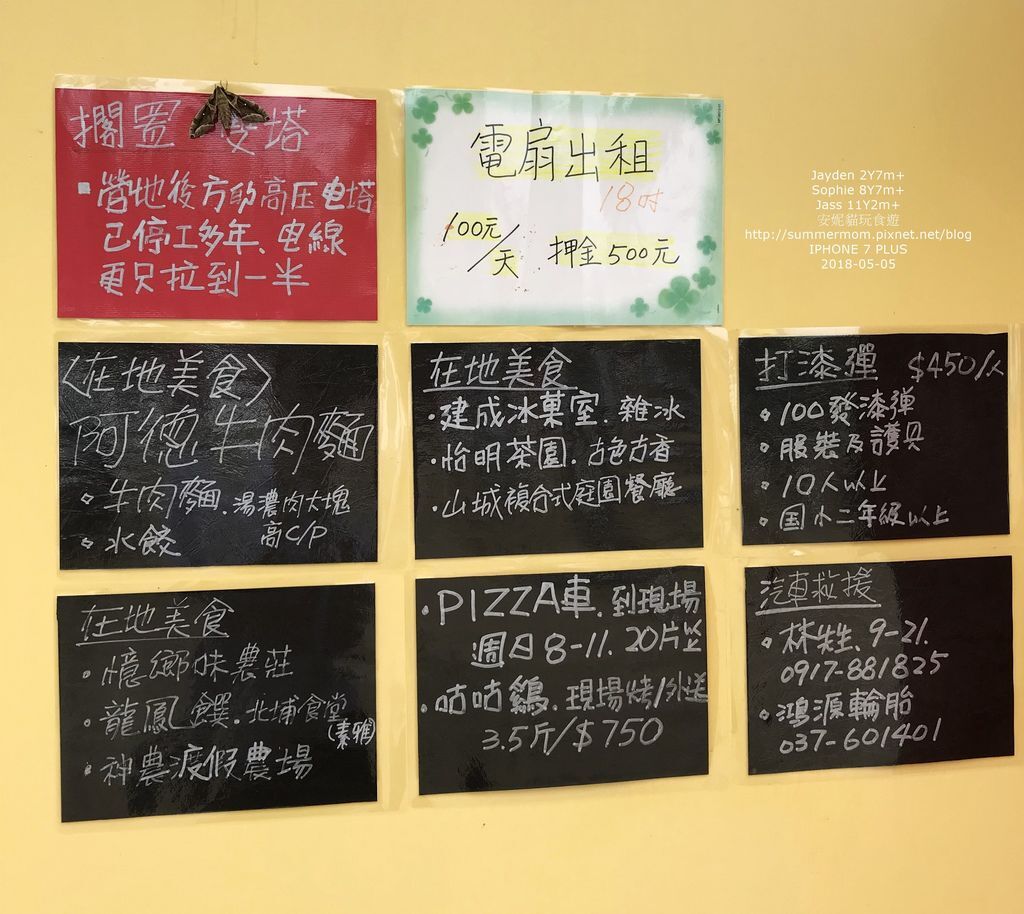 擱置 塔
營地後方的高压电塔
己停工多年、电線
更只拉到一半
電扇出租
18吋
100元/天 押金500元
Jayden 2Y7m+
Sophie 8Y7m+
Jass 11Y2m+
安妮貓玩食遊
http://summermom.pixnet.net/blog
IPHONE 7 PLUS
2018-05-05
〈在地美食〉
阿德牛肉麵
。牛肉麵.湯濃肉大塊
。水餃 高C/P
在地美食
·建成冰菓室.雜冰
·怡明茶園.古色古香
·山城複合式庭園餐廳
打漆彈 $450/人
。100發漆彈
。服裝及護具
。10人以上
。国小二年級以上
在地美食
·憶鄉味農莊
·龍鳳饌.北埔食堂
(素雅)
·神農渡假農場
·PIZZA車.到現場
週日8-11. 20片以
·咕咕鷄.現場烤/外送
3.5斤/$750
汽車救援
·林先生、9-21.
0917-881825
·鴻源輪胎
037-601401